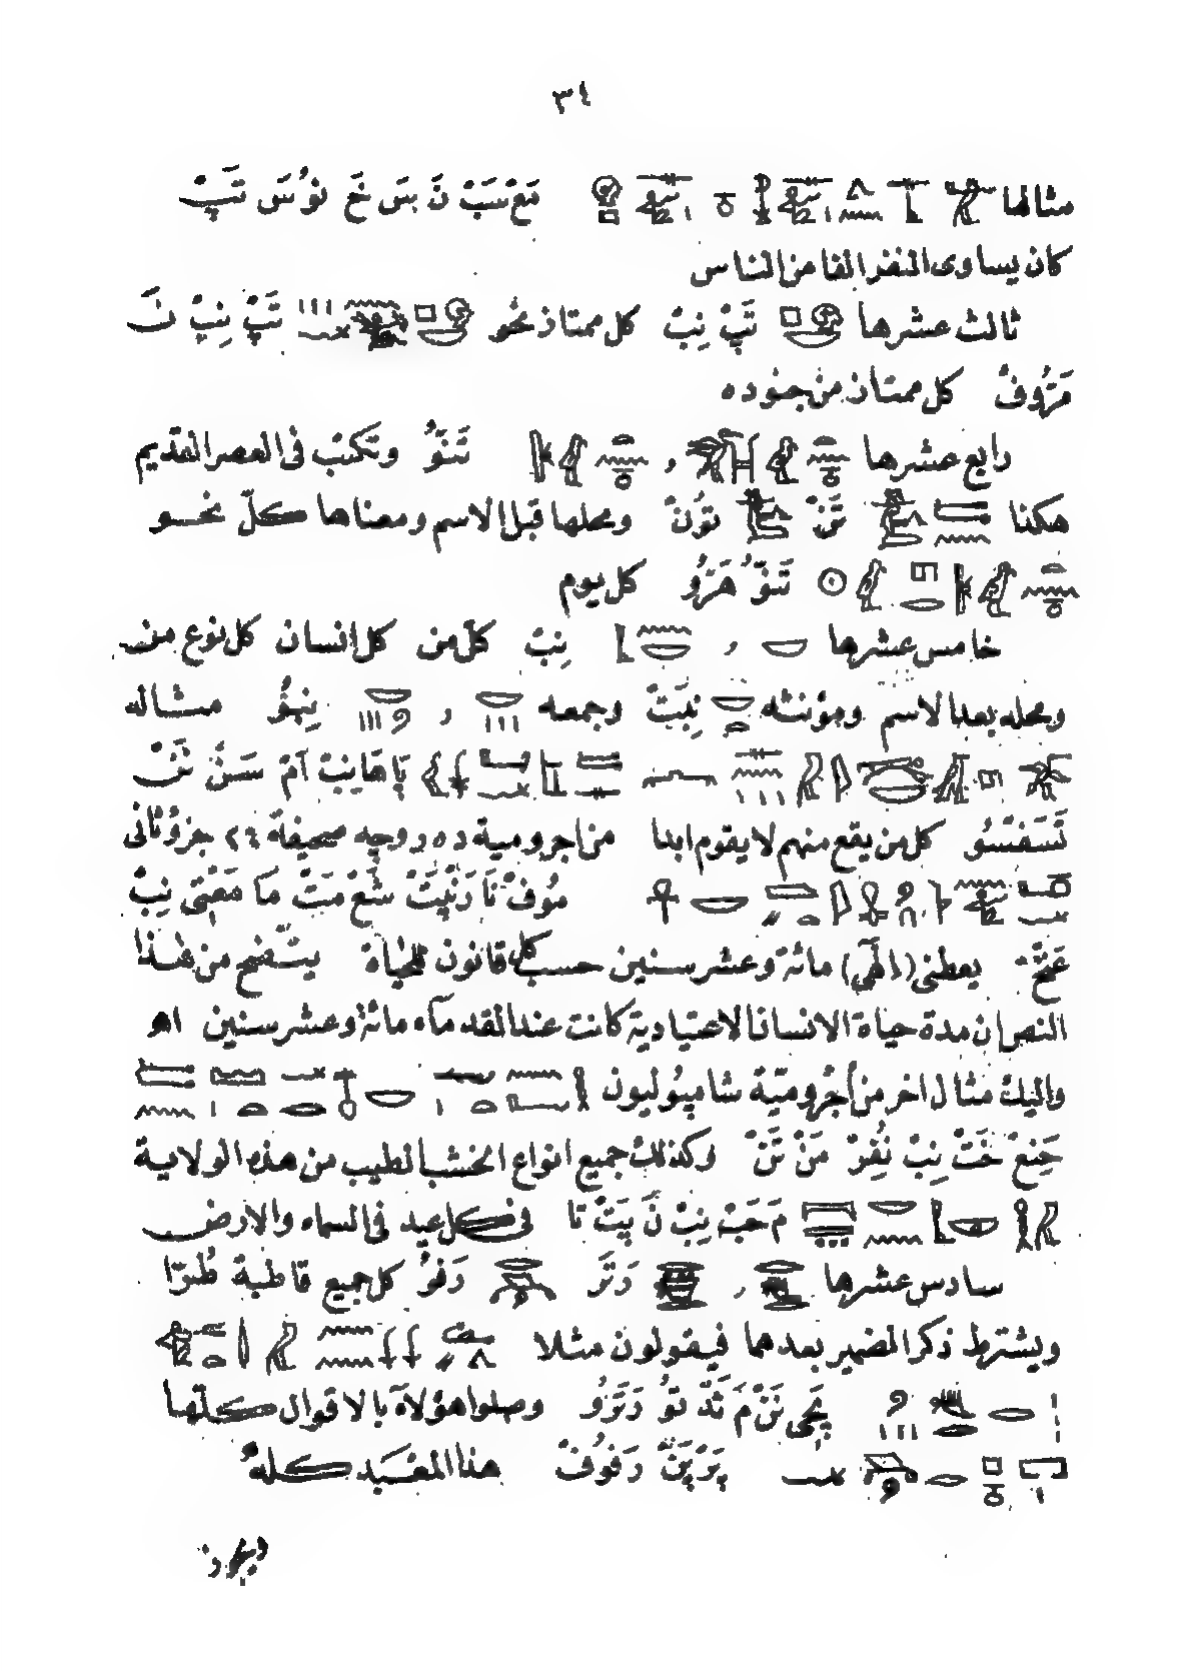 ٣٤
مثالها مَعْ سَبْ نَ سَ خَ نوُسَ تَپْ
كان يساوى النفر الفا من الناس
ثالث عشرها تَپْ نِبْ كل ممتاز نحو تَپْ نِبْ نَ
مَرُوفْ كل ممتاز من جنوده
رابع عشرها , تَنّوُ وتكتب فى العصر القديم
هكذا تَنْ نوُنْ ومحلها قبل الاسم ومعناها كلّ نحو
تَنّوُ هَرُو كل يوم
خامس عشرها , نِبْ كلّ من كل انسان كل نوع من
ومحله بعد الاسم ومؤنثه نِبَتْ وجمعه , نِبوُ مثاله
پَا هَا نِبْ اَمْ سَسَنْ نَنْ
تَسَفْسَوُ كل من يقع منهم لا يقوم ابدا من اجرومية ده روچه صحيفة ٢٤ جزؤ ثانى
مَا مَعْتَى نِبْ
عَنْخْ يعطنى (الهى) مائة وعشر سنين حسب كل قانون للحياة يتّضح من هذا
النص ان مدة حياة الانسان الاعتيادية كانت عند القدماء مائة وعشر سنين اهـ
واليك مثال اخر من أجروميّة شامپوليون
حَنِعْ خَتْ نِبْ نُفِرْ مَنْ تَنْ وكذلك جميع انواع الخشب الطيب من هذه الولاية
مَ حَبْ نِبْ نَ پَتْ تا فى كل عيد فى السماء والارض
سادس عشرها , دَتَرْ دَفوُ كل جميع قاطبة طُرّا
ويشترط ذكر الضمير بعدهما فيقولون مثلا
وصلوا هؤلاء بالاقوال كلّها
پَرْ پَنْ دَفوُفْ هذا المعبد كلهُ